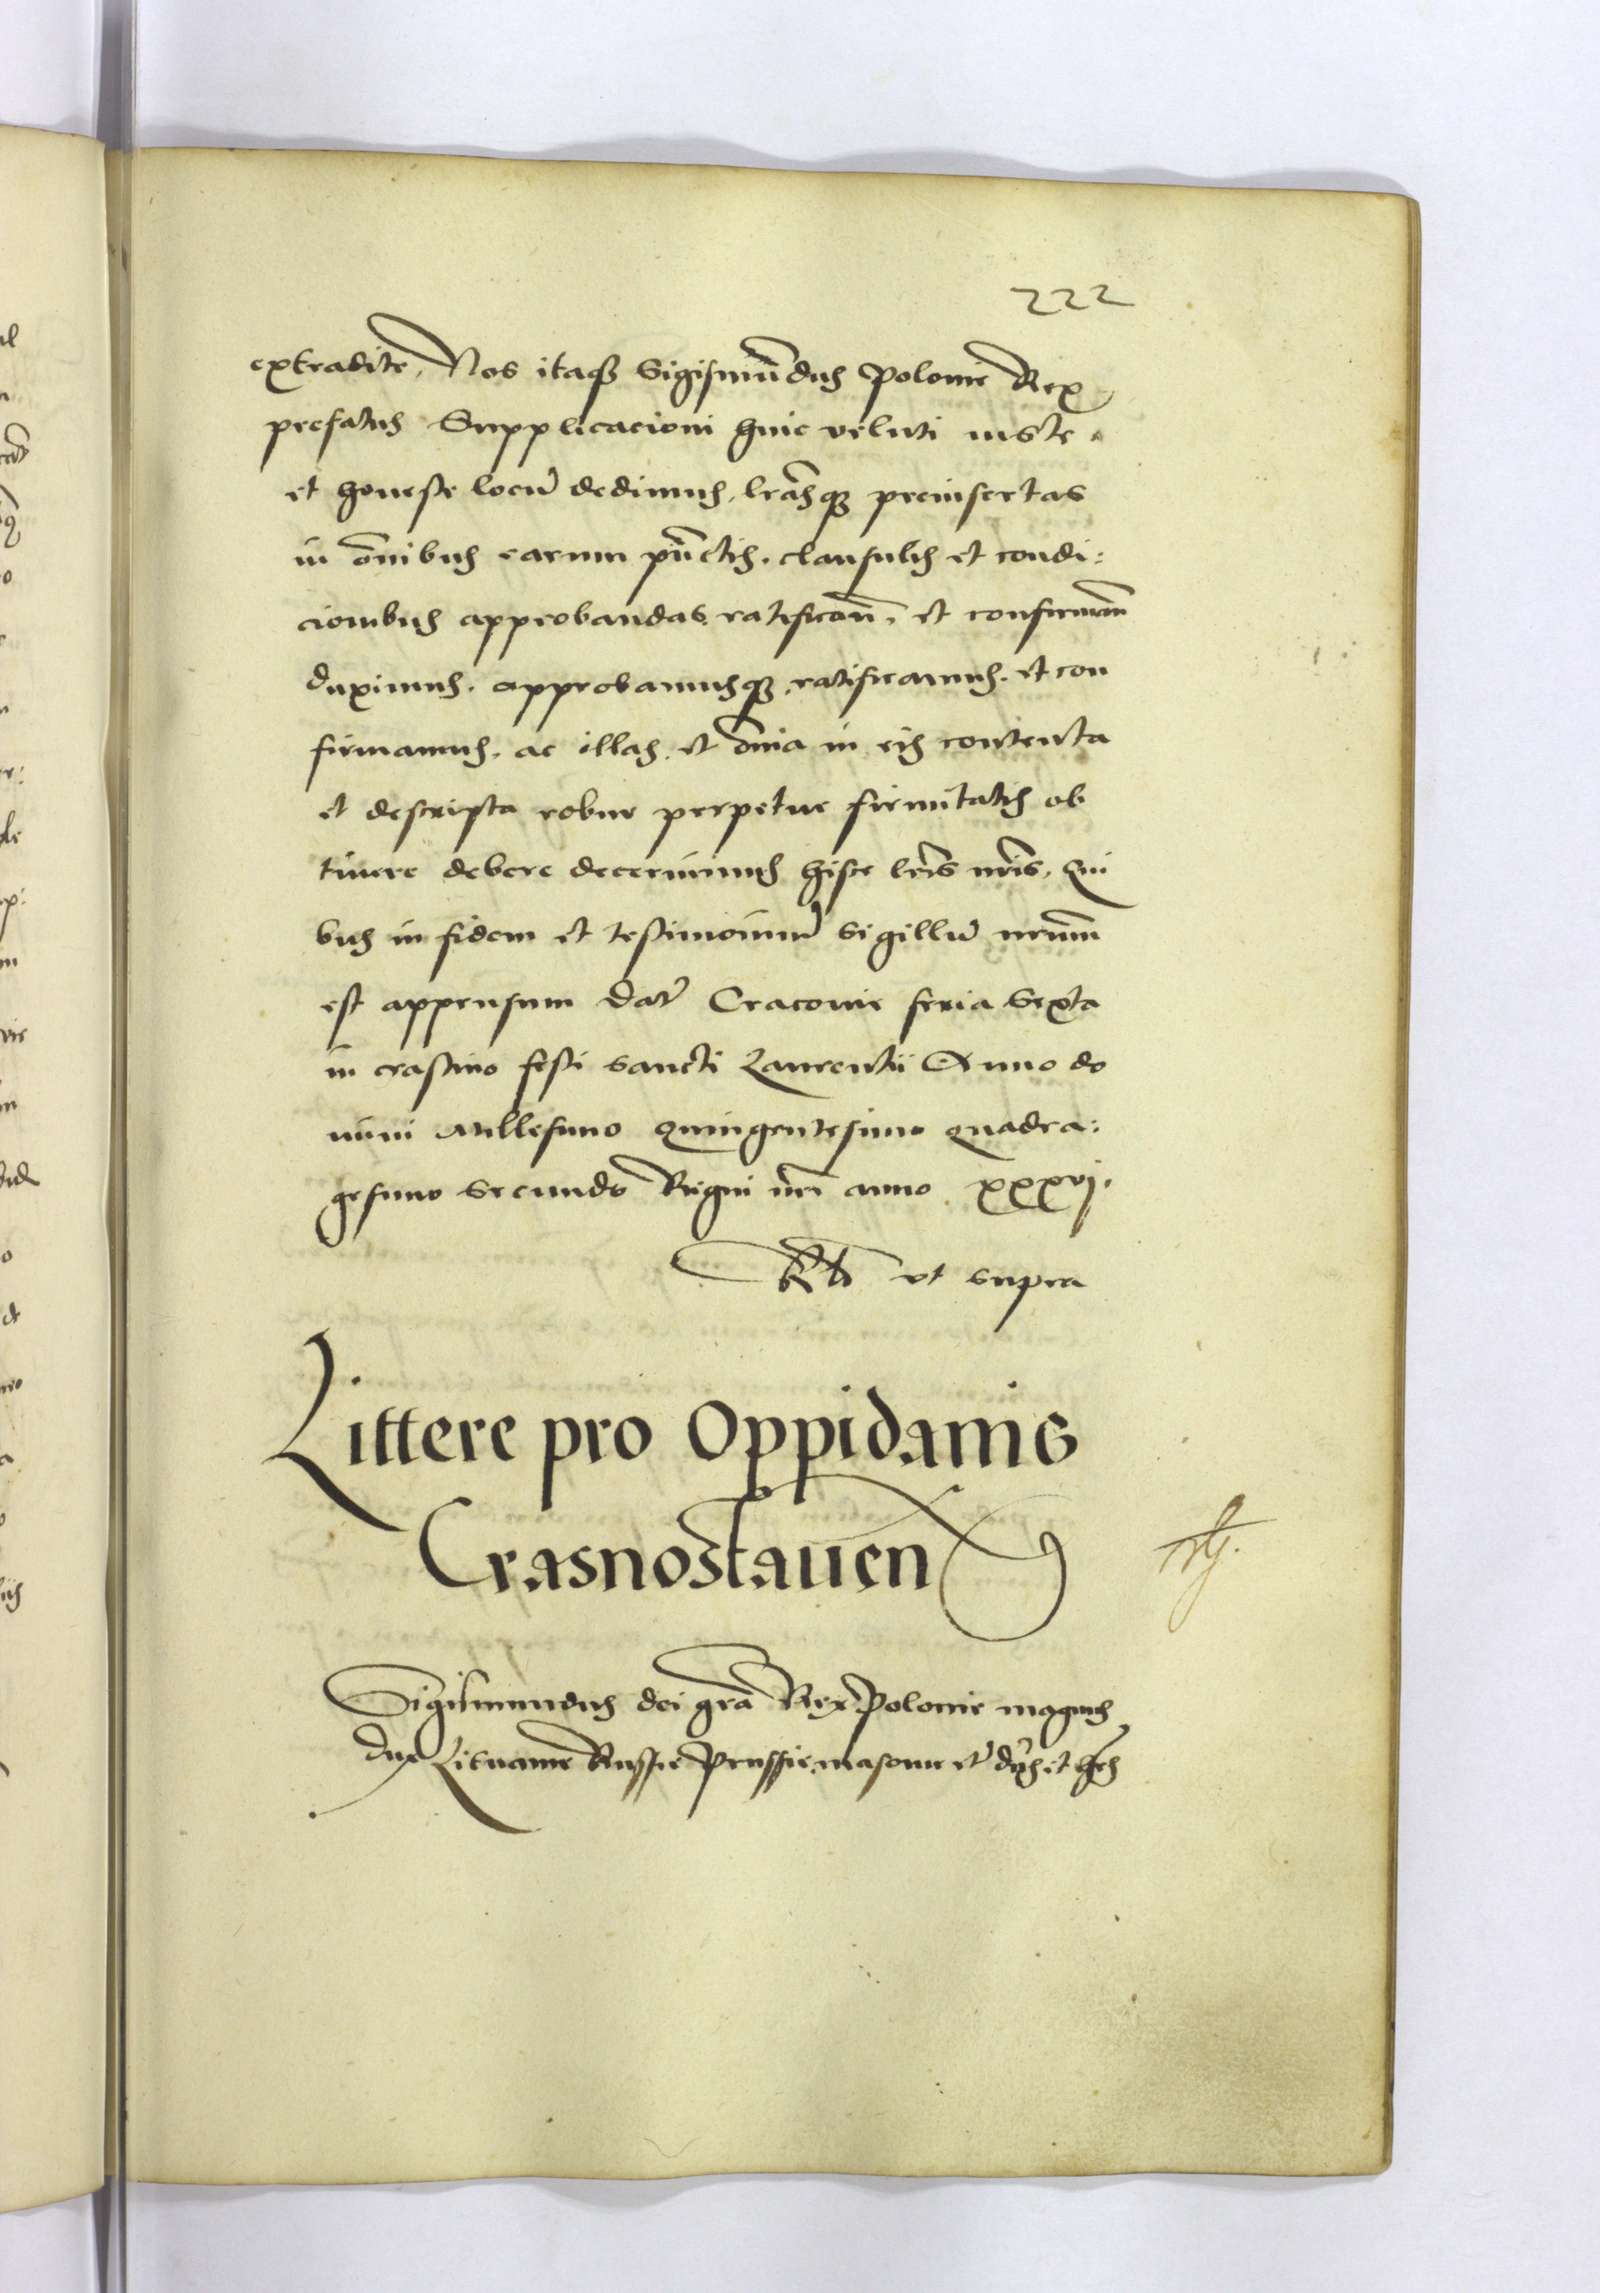 222
extradite, Nos itaqz Sigismūdus Polonie Rex
prefatus Supplicacioni huic veluti iuste
et honeste locū dedimus, lrāsqz preinsertas
in ōnibus earum pūctis, clausulis et condi:
cionibus approbandas, ratificañ, et confirmañ
duximus, approbamusqz, ratificamus, et con
firmamus, ac illas, et ōnia in eis contenta
et descripta robur perpetue firmitatis ob
tinere debere decernimus hisce lrīs nrīs, Qui
bus in fidem et testimoniū sigillū nrūm
est appensum Dat Cracovie feria Sexta
in crastino festi sancti Laurentii Anno do
mini Millesimo Quingentesimo Quadra:
gesimo Secundo Regni nrī anno xxxvj.
ut supra
Littere pro Oppidanis
Crasnostauen
Sigismundus dei grā Rex Polonie magnus
Dux Lituanie Russie Prussie masouie etc dns et hres